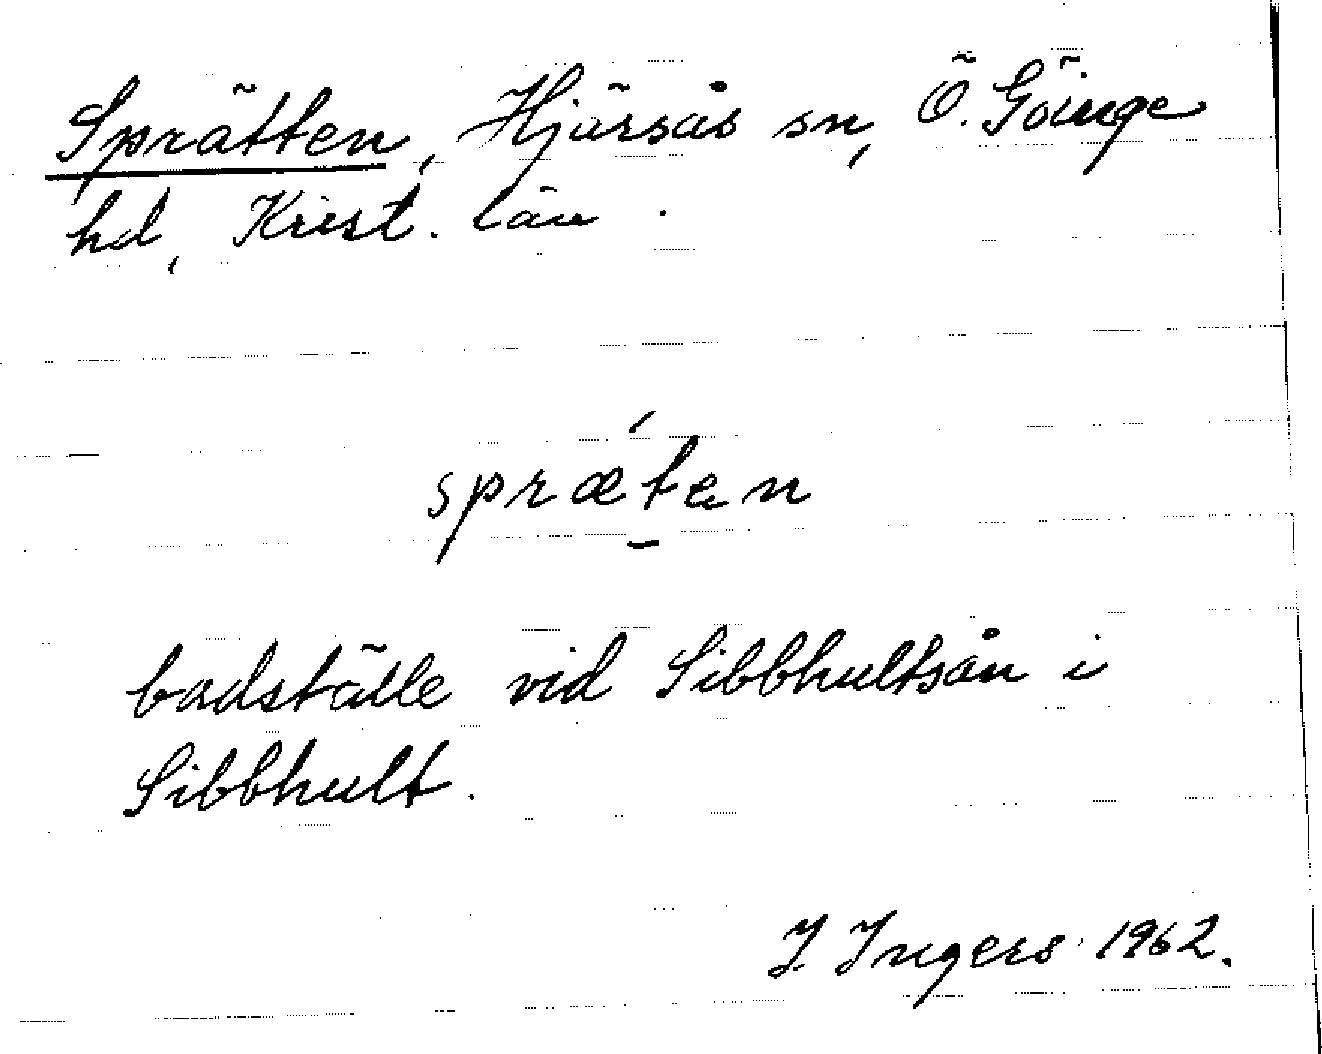 Sprätten, Hjärsås sn, Ö. Göinge
hd, Krist. län.
spræ´t̠en
badställe vid Sibbhultsån i
Sibbhult.
I Ingers 1962.